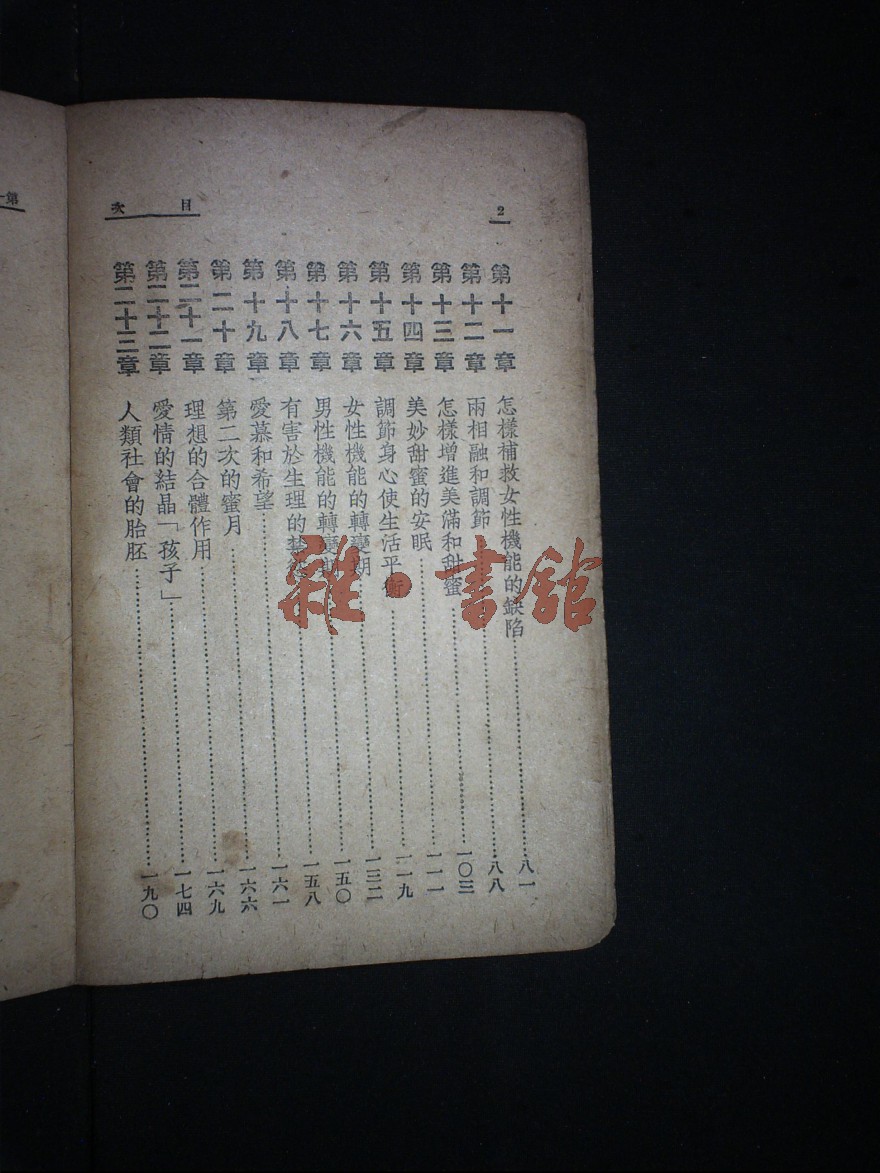 目次
2
第十一章 怎樣補救女性機能的缺陷……八一
第十二章 兩相融和調節……八八
第十三章 怎樣增進美滿和甜蜜……一〇三
第十四章 美妙甜蜜的安眠……一一一
第十五章 調節身心使生活平衡……一一九
第十六章 女性機能的轉變期……一三二
第十七章 男性機能的轉變期……一五〇
第十八章 有害於生理的禁慾……一五八
第十九章 愛慕和希望……一六一
第二十章 第二次的蜜月……一六六
第二十一章 理想的合體作用……一六九
第二十二章 愛情的結晶「孩子」……一七四
第二十三章 人類社會的胎胚……一九〇
雜·書館